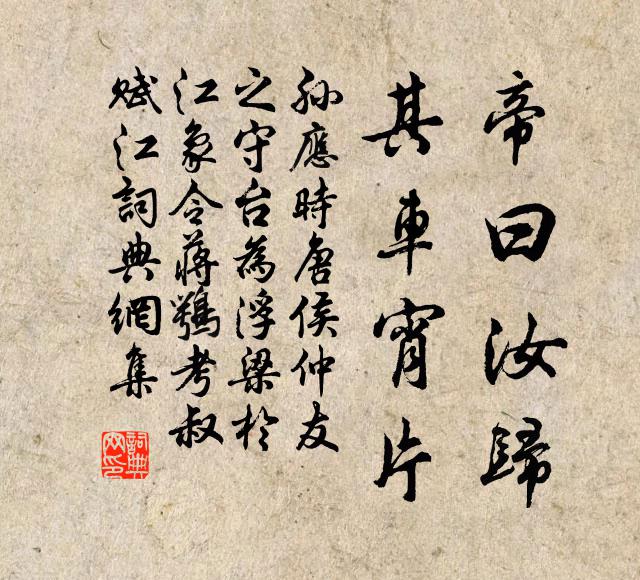 帝曰汝歸
其車宵片
孫應時唐侯仲友
之守台為浮梁於
江象令蔣鶚考叔
賦江詞典網集
詞典网印